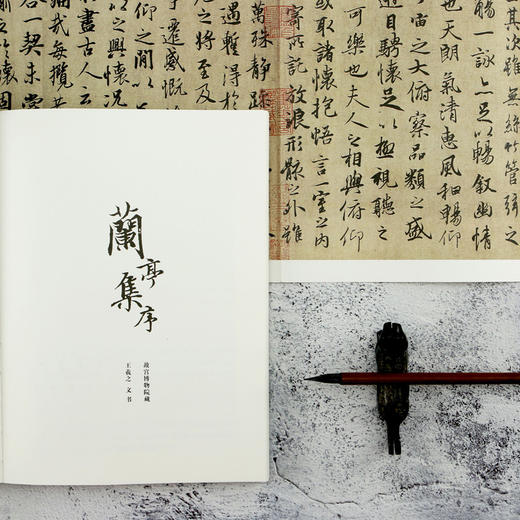 其次雖無絲竹管弦之
觴一詠亦足以暢敘幽情
也天朗氣清惠風和暢仰
宙之大俯察品類之盛
遊目騁懷足以極視聽之
可樂也夫人之相與俯仰
或取諸懷抱悟言一室之內
寄所託放浪形骸之外雖
萬殊靜躁
遇暫得於
之將至及
遷感慨
仰之間以
以之興懷況
盡古人云
每攬昔
合一契未嘗
蘭亭集序
故宫博物院藏
王羲之 文 书